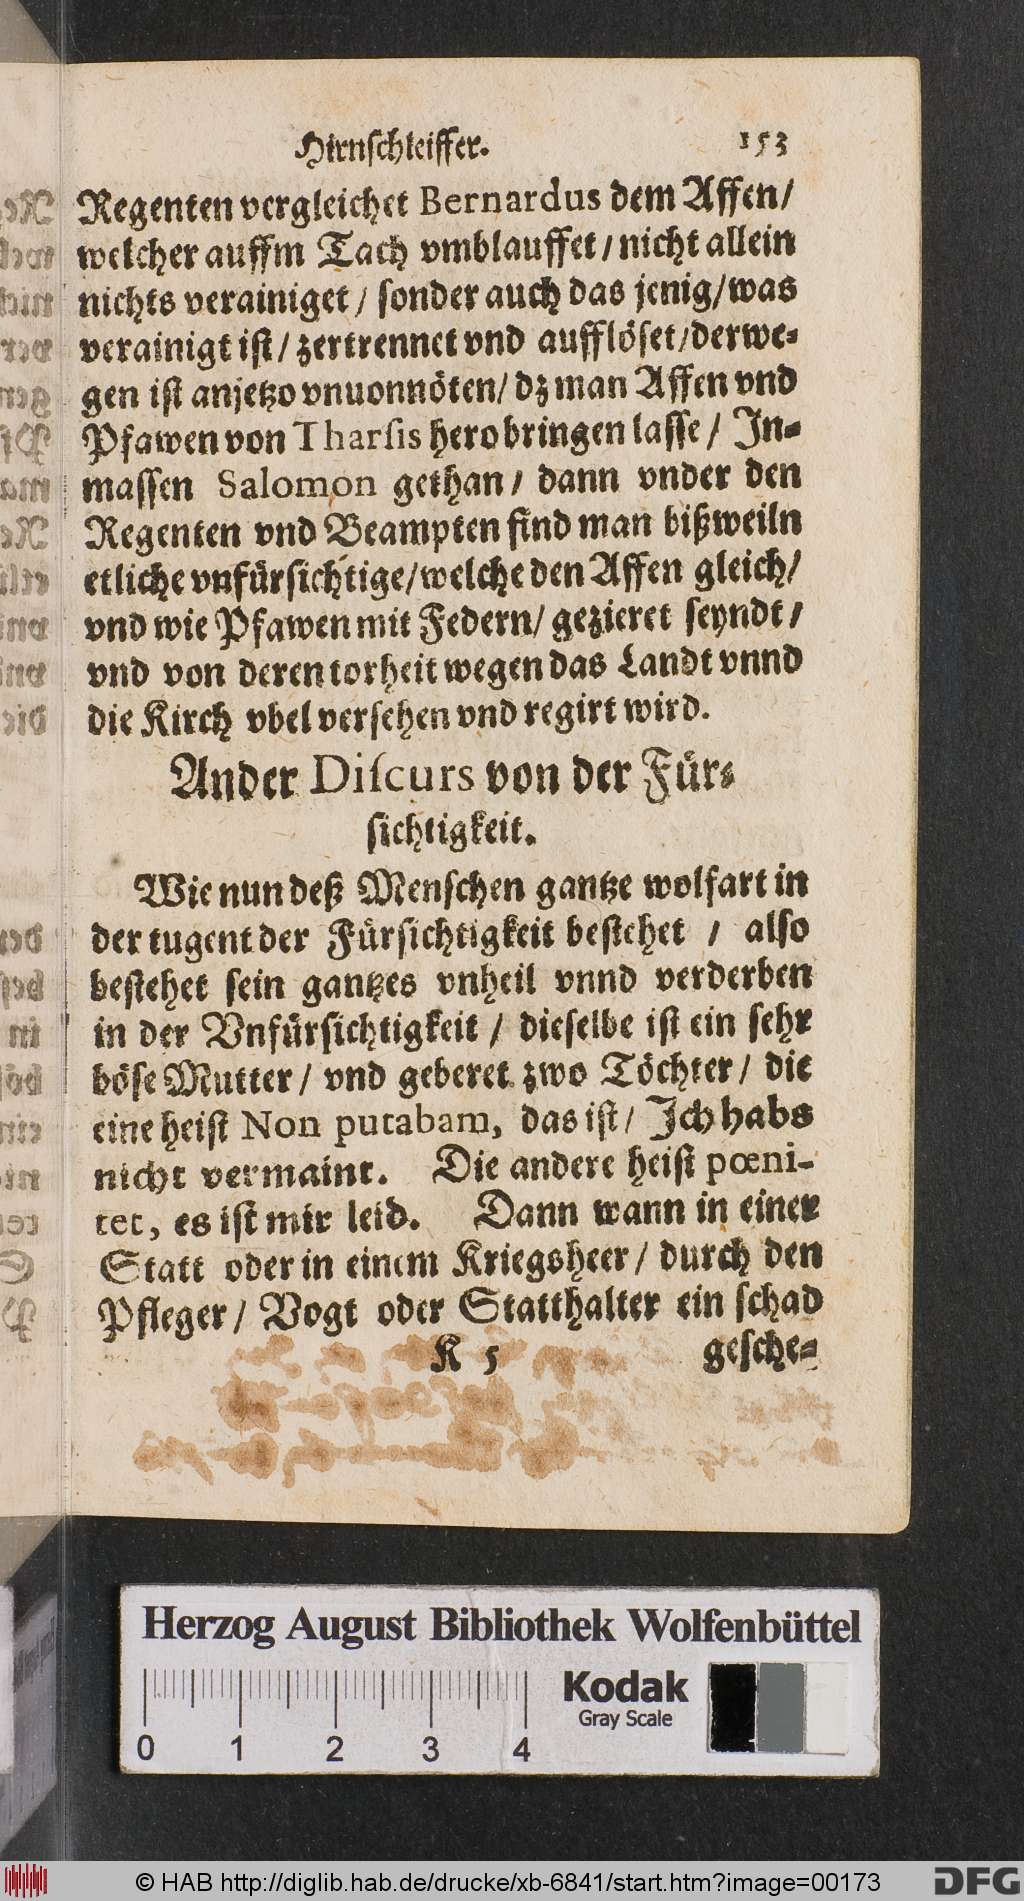 Hirnschleiffer. 153
Regenten vergleichet Bernardus dem Affen/
welcher auffm Tach vmblauffet / nicht allein
nichts verainiget / sonder auch das jenig/was
verainigt ist/ zertrennet vnd aufflöset/derwe-
gen ist anjetzo vnuonnöten/ dz man Affen vnd
Pfawen von Tharsis herobringen lasse / In-
massen Salomon gethan / dann vnder den
Regenten vnd Beampten find man bißweiln
etliche vnfürsichtige/welche den Affen gleich/
vnd wie Pfawen mit Federn/ gezieret seyndt/
vnd von deren torheit wegen das Landt vnnd
die Kirch vbel versehen vnd regirt wird.
Ander Discurs von der Für-
sichtigkeit.
Wie nun deß Menschen gantze wolfart in
der tugent der Fürsichtigkeit bestehet / also
bestehet sein gantzes vnheil vnnd verderben
in der Vnfürsichtigkeit / dieselbe ist ein sehr
böse Mutter / vnd geberet zwo Töchter / die
eine heist Non putabam, das ist / Ich habs
nicht vermaint. Die andere heist pœni-
tet, es ist mir leid. Dann wann in einer
Statt oder in einem Kriegsheer / durch den
Pfleger / Vogt oder Statthalter ein schad
K 5 gesche-
Herzog August Bibliothek Wolfenbüttel
Kodak
Gray Scale
0 1 2 3 4
© HAB http://diglib.hab.de/drucke/xb-6841/start.htm?image=00173
DFG